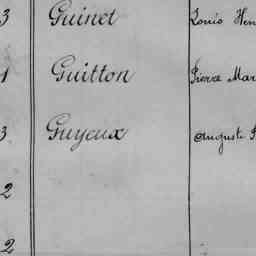 3 Guinet Louis Hen
1 Guitton Pierre Mar
3 Guyeux Auguste
2
2